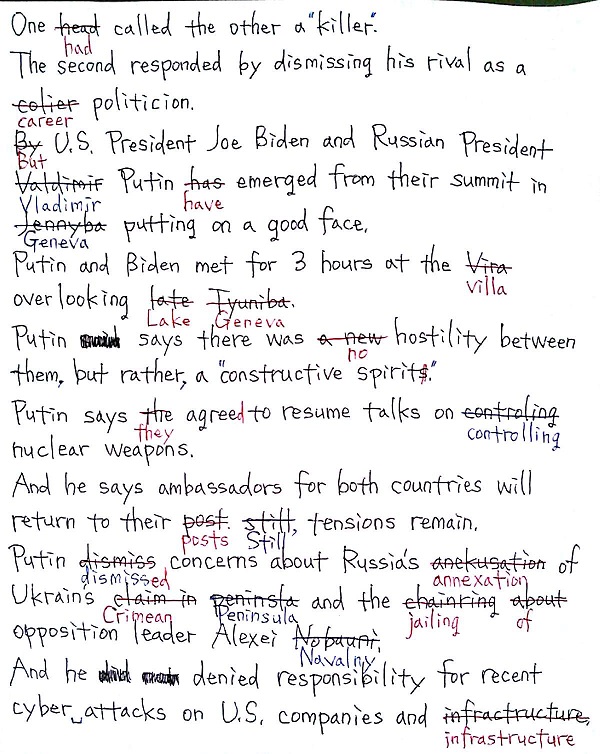 One head called the other a "killer".
had
The second responded by dismissing his rival as a
colier politicion.
career
By U.S. President Joe Biden and Russian President
But
Valdimir Putin has emerged from their summit in
Vladimir have
Jennyba putting on a good face.
Geneva
Putin and Biden met for 3 hours at the Vira
villa
overlooking late Iyuniba.
Lake Geneva
Putin says there was a new hostility between
no
them, but rather, a "constructive spirits."
Putin says the agreed to resume talks on controling
they controlling
nuclear weapons.
And he says ambassadors for both countries will
return to their post. still, tensions remain.
posts Still
Putin dismiss concerns about Russia's anekusation of
dismissed annexation
Ukrain's claim in peninsla and the chainring about
Crimean Peninsula jailing of
opposition leader Alexei Nobauni.
Navalny
And he denied responsibility for recent
cyber attacks on U.S. companies and infractructure.
infrastructure